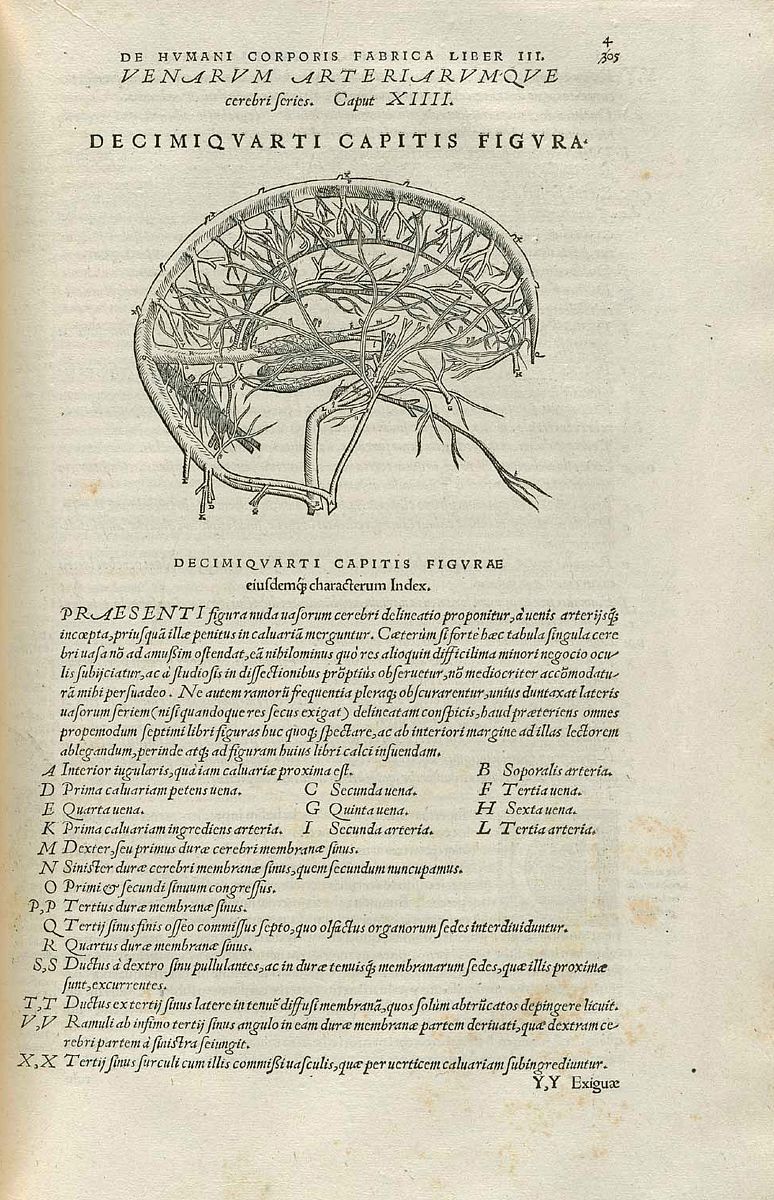 4
305
DE HVMANI CORPORIS FABRICA LIBER III.
VENARVM ARTERIARVMQVE
cerebri series. Caput XIIII.
DECIMIQVARTI CAPITIS FIGVRA.
DECIMIQVARTI CAPITIS FIGVRAE
eiusdemq́; characterum Index.
PRAESENTI figura nuda uasorum cerebri delineatio proponitur, à uenis arterijsq́;
incœpta, priusquā illæ penitus in caluariā merguntur. Cæterùm si forte hæc tabula singula cere
bri uasa nō ad amußim ostendat, eā nihilominus quò res alioquin difficilima minori negocio ocu-
lis subijciatur, ac à studiosis in dissectionibus prōptiùs obseruetur, nō mediocriter accōmodatu-
rā mihi persuadeo. Ne autem ramorū frequentia pleraq; obscurarentur, unius duntaxat lateris
uasorum seriem (nisi quandoque res secus exigat) delineatam conspicis, haud præteriens omnes
propemodum septimi libri figuras huc quoq; spectare, ac ab interiori margine ad illas lectorem
ablegandum, perinde atq; ad figuram huius libri calci insuendam.
A Interior iugularis, quà iam caluariæ proxima est. B Soporalis arteria.
D Prima caluariam petens uena. C Secunda uena. F Tertia uena.
E Quarta uena. G Quinta uena. H Sexta uena.
K Prima caluariam ingrediens arteria. I Secunda arteria. L Tertia arteria.
M Dexter, seu primus duræ cerebri membranæ sinus.
N Sinister duræ cerebri membranæ sinus, quem secundum nuncupamus.
O Primi & secundi sinuum congressus.
P,P Tertius duræ membranæ sinus.
Q Tertij sinus finis osseo commissus septo, quo olfactus organorum sedes interdiuiduntur.
R Quartus duræ membranæ sinus.
S,S Ductus à dextro sinu pullulantes, ac in duræ tenuisq́; membranarum sedes, quæ illis proximæ
sunt, excurrentes.
T,T Ductus ex tertij sinus latere in tenuē diffusi membranā, quos solùm abtrūcatos depingere licuit.
V,V Ramuli ab infimo tertij sinus angulo in eam duræ membranæ partem deriuati, quæ dextram ce-
rebri partem à sinistra seiungit.
X,X Tertij sinus surculi cum illis commißi uasculis, quæ per uerticem caluariam subingrediuntur.
Y,Y Exiguæ